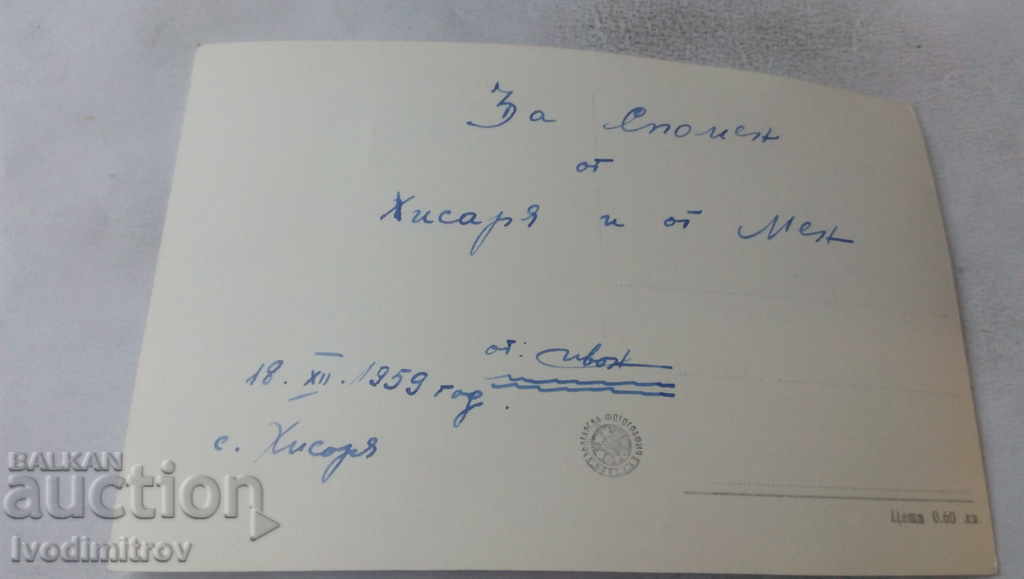 За Спомен
от
Хисаря и от Мен
от: Иван
18. XII. 1959 год.
с. Хисаря
Цена 0.60 лв
BALKAN
auction
Ivodimitrov